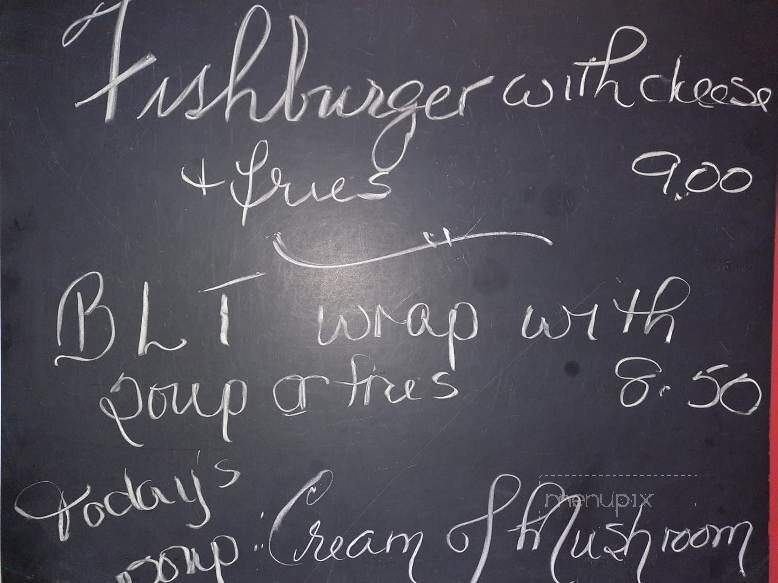 Fishburger with cheese
+ fries 9.00
BLT wrap with
soup or fries 8.50
Today's
soup: Cream of Mushroom
menupix